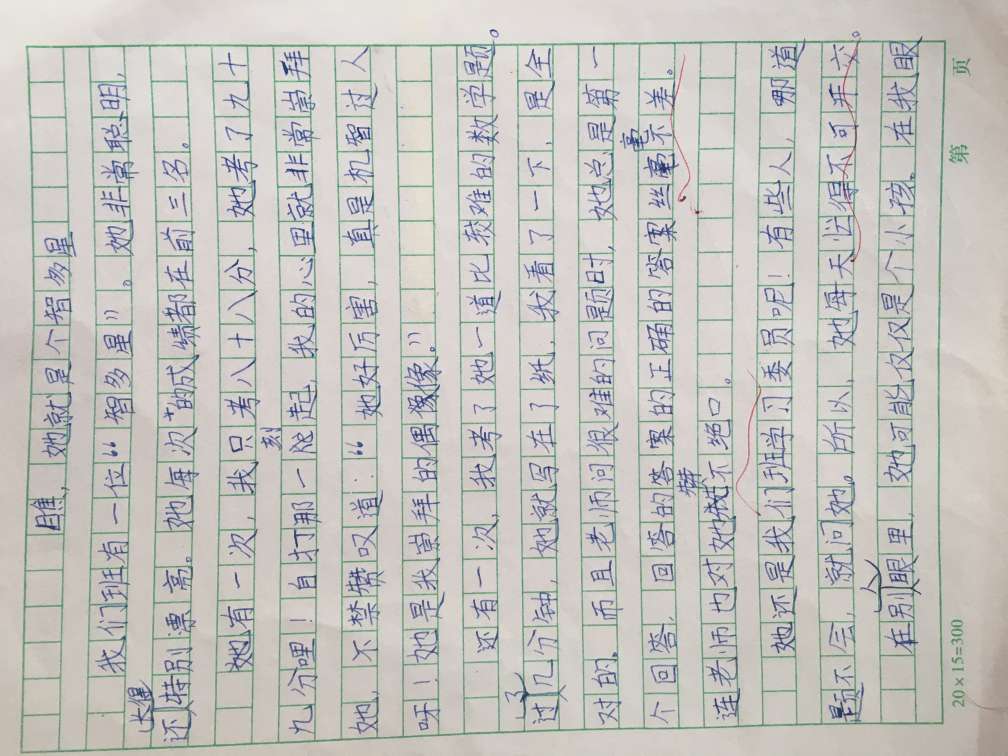 瞧，她就是个智多星
我们班有一位“智多星”。她非常聪明，
还长得特别漂亮。她每次的成绩都在前三名。
她有一次，我只考八十八分，她考了九十
九分哩！自打那一刻起，我的心里就非常崇拜
她，不禁赞叹道：“她好厉害，真是机智过人
呀！她是我崇拜的偶像。”
还有一次，我考了她一道比较难的数学题。
过了几分钟，她就写在了纸，我看了一下，是全
对的。而且老师问很难的问题时，她总是第一
个回答，回答的答案的正确的答案丝毫不差。
连老师也对她赞不绝口。
她还是我们班学习委员呢！有些人，哪道
题不会，就问她。所以，她每天忙得不可开交。
在别人眼里，她可能仅仅是个小孩。在我眼
20×15=300 第 页